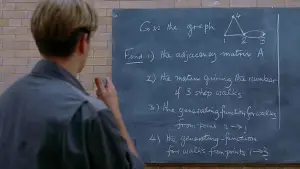 G is the graph
Find 1) the adjacency matrix A
2) the matrix giving the number
of 3 step walks
3) the generating function for walks
from point i → j
4) the generating function
for walks from points 1 → 3